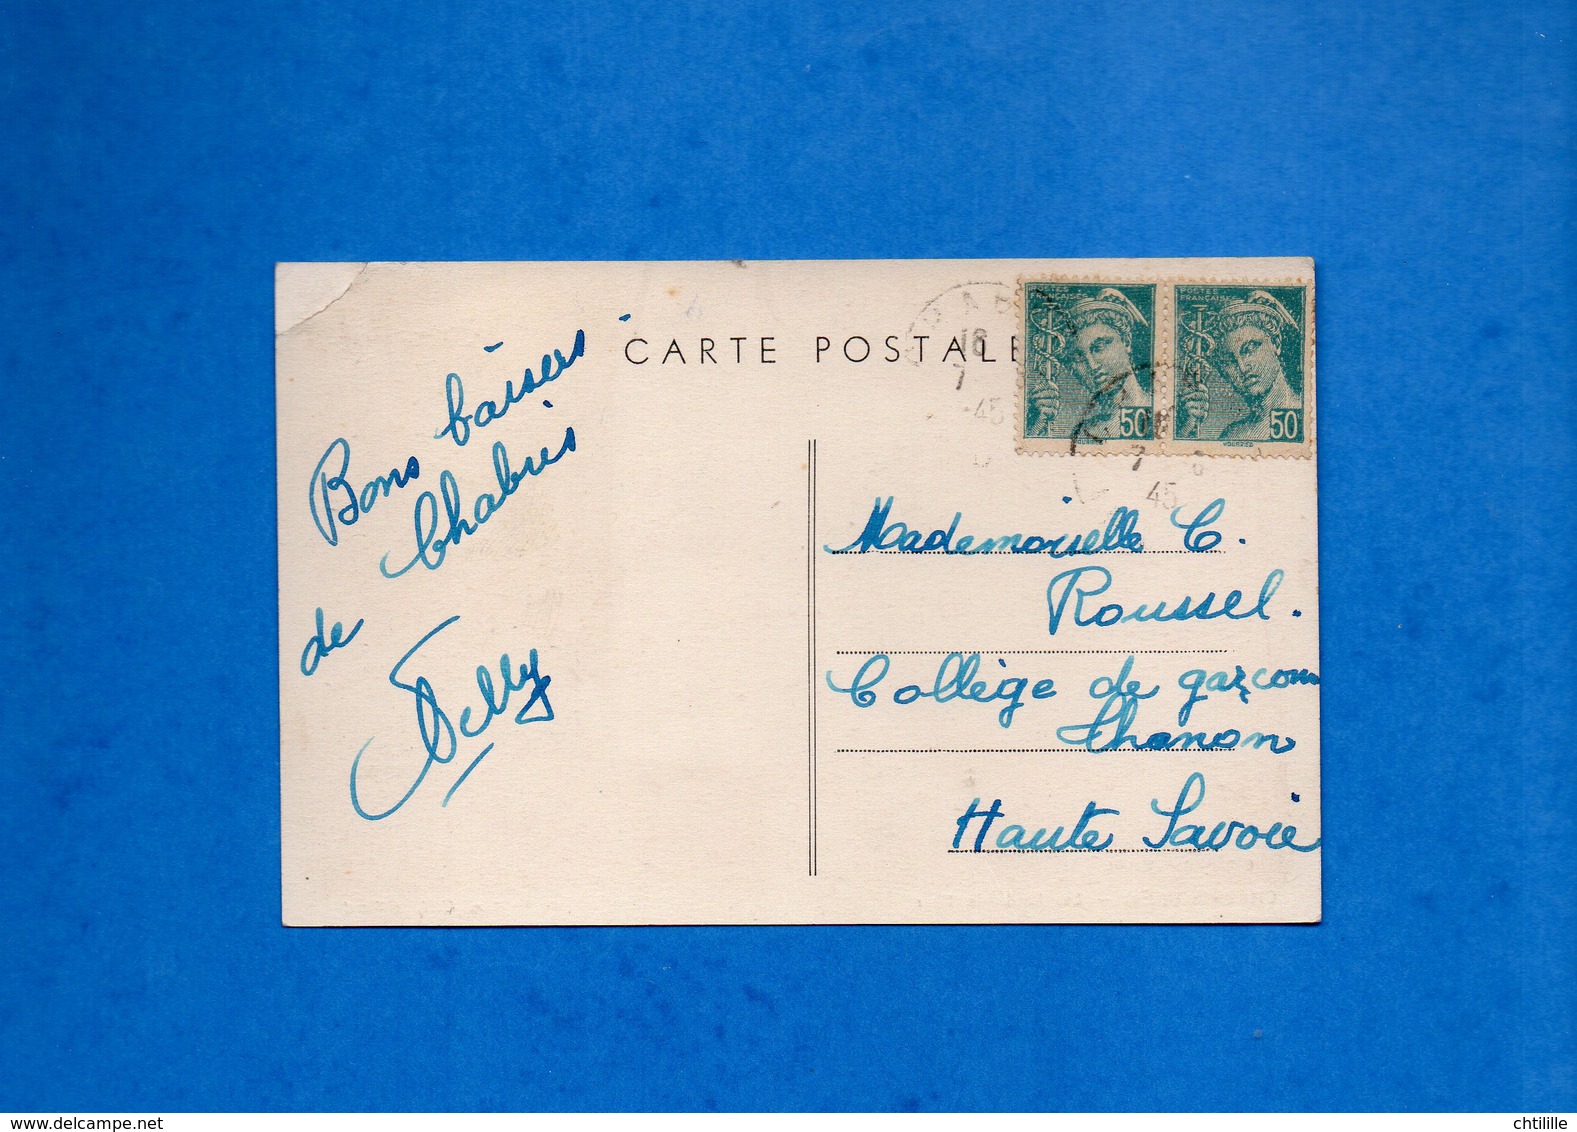 CARTE POSTALE
POSTES
FRANÇAISES
50
POSTES
FRANÇAISES
50
18
7
45
7
45
Bons baisers
de Chabris
Nelly
Mademoiselle C.
Roussel.
Collège de garçons
Thonon
Haute Savoie
www.delcampe.net
chtilille